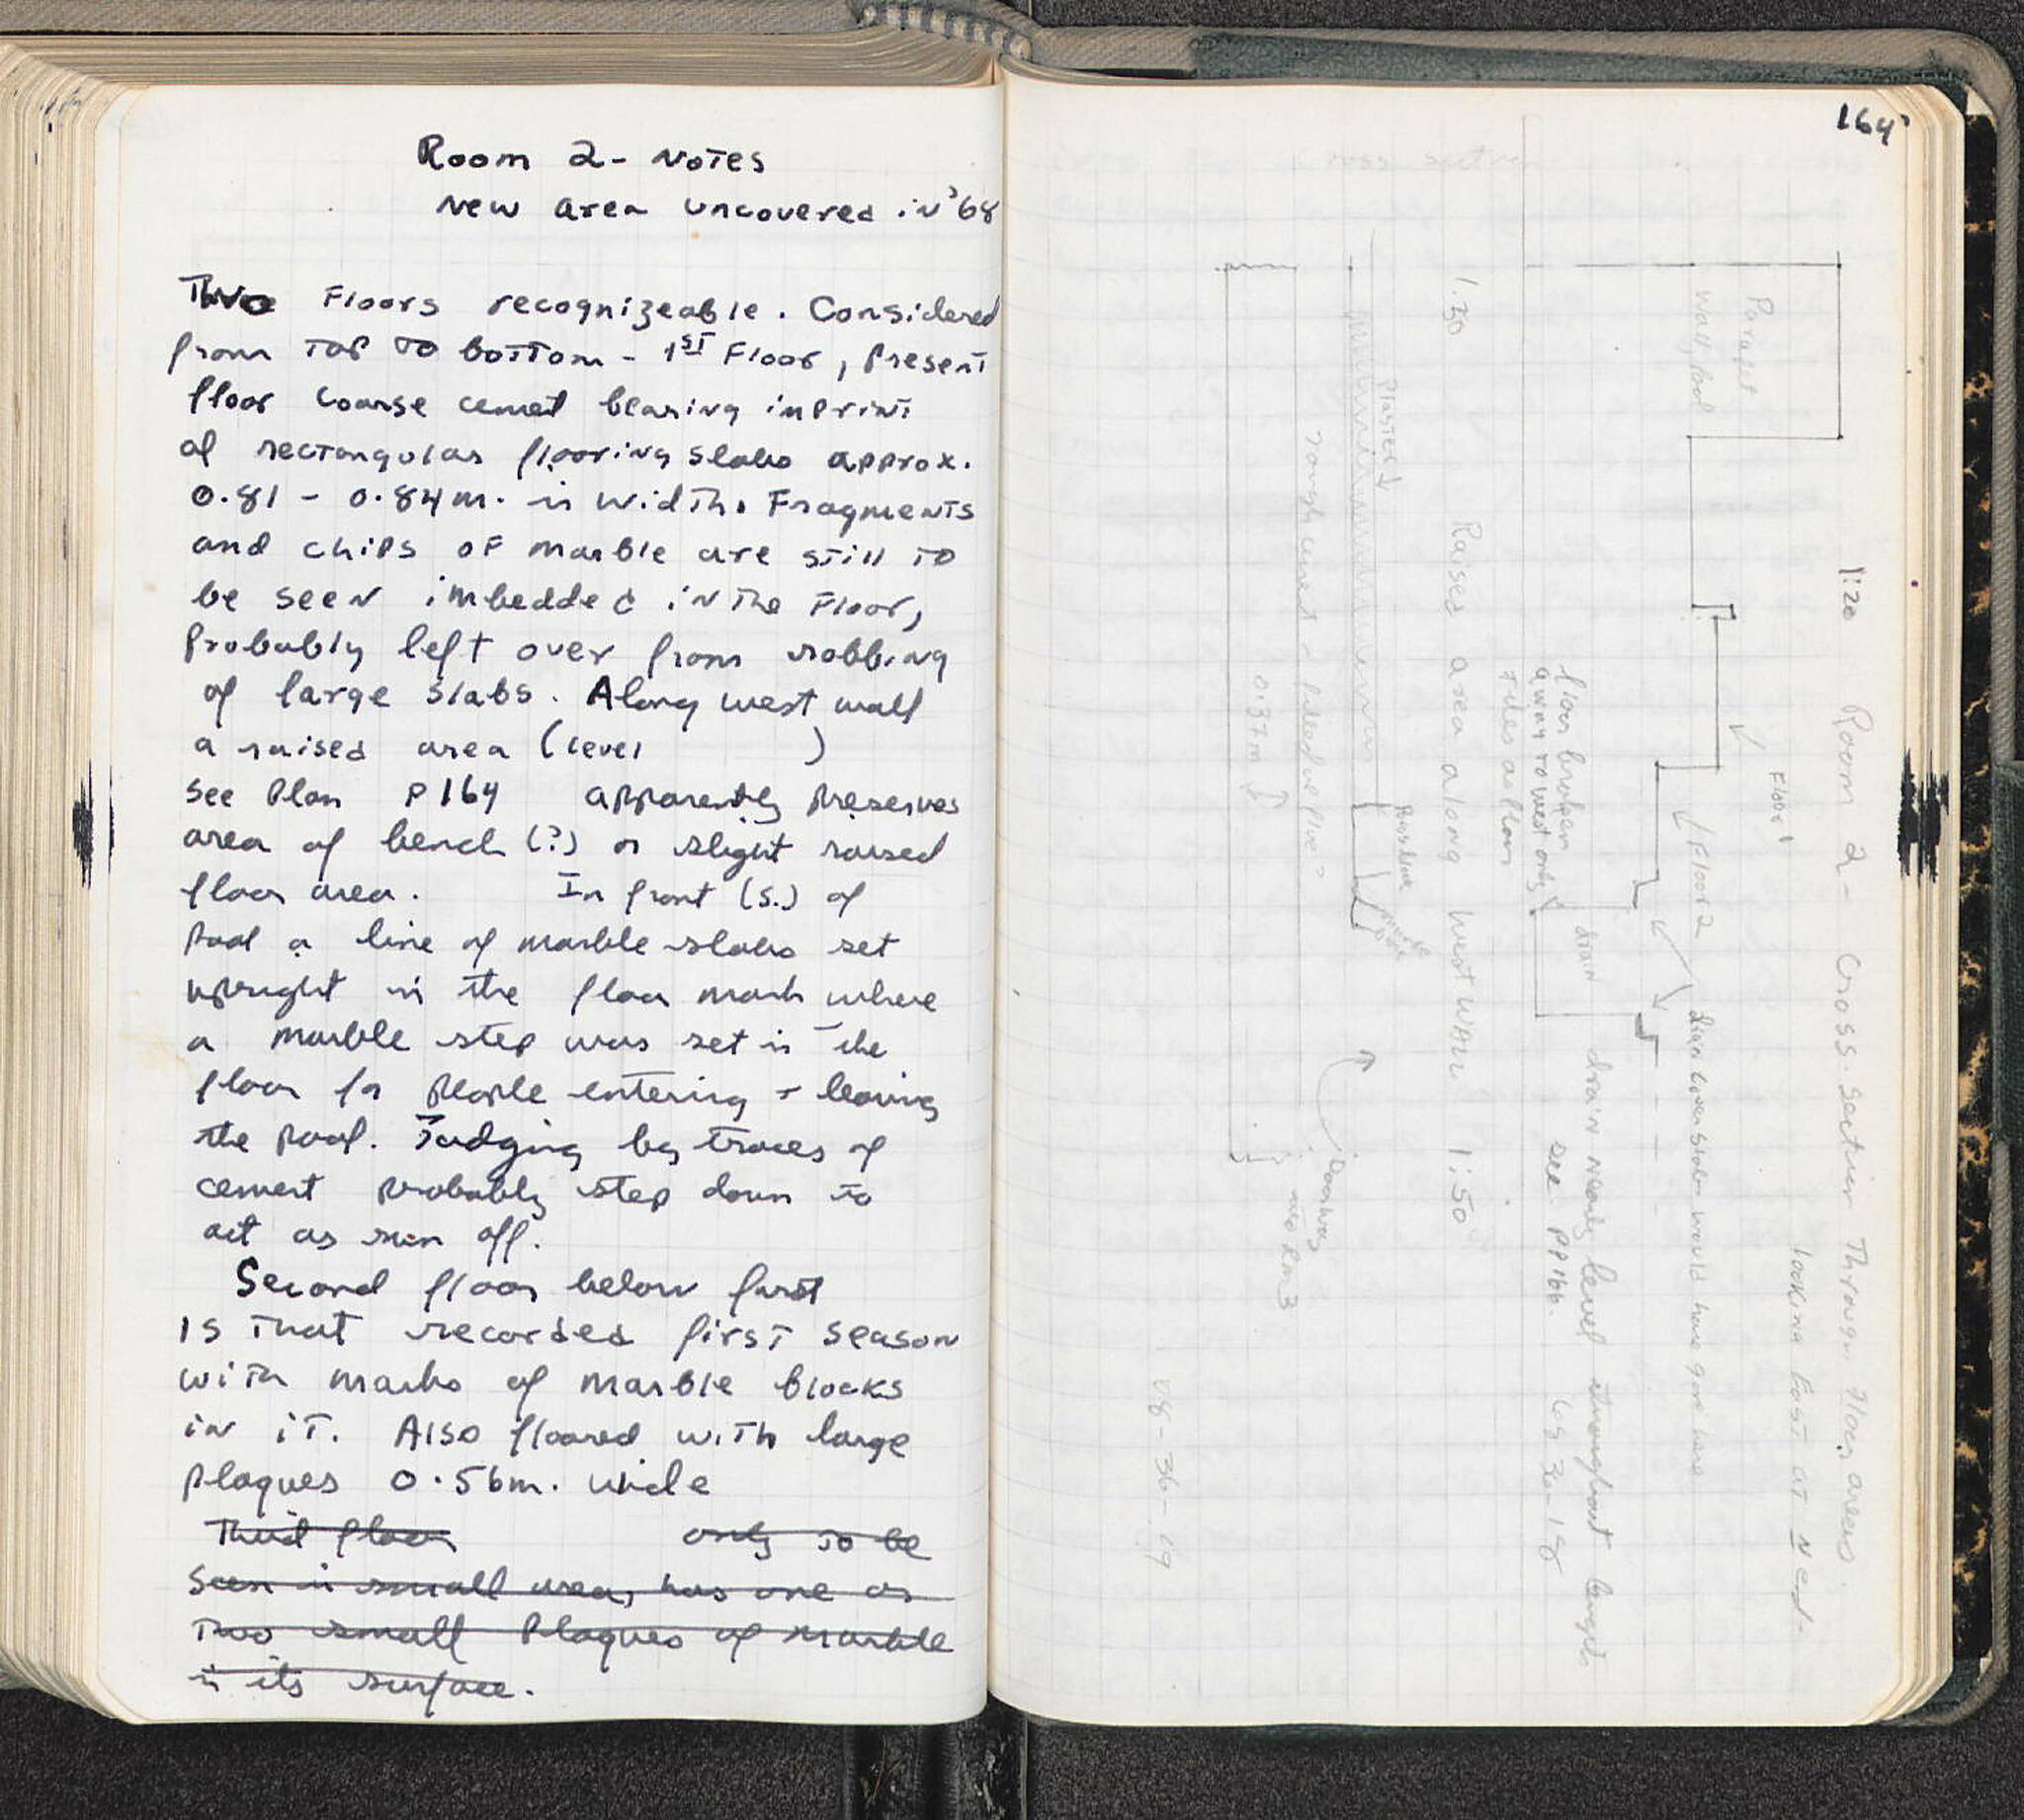 Room 2 - Notes
New area uncovered in '68
Two Floors recognizeable. Considered
from top to bottom - 1st Floor, Present
floor coarse cemet bearing inprint
of rectangular flooring slabs approx.
0.81 - 0.84m. in width. Fragments
and chips of marble are still to
be seen imbedded in the Floor,
Probably left over from robbing
of large slabs. Along west wall
a raised area (level )
See Plan P164 apparently preserves
area of bench (?) or slight raised
floor area. In front (S.) of
Pool a line of marble slabs set
upright in the floor mark where
a marble step was set in the
floor for people entering + leaving
the pool. Judging by traces of
cement probably step down to
act as run off.
Second floor below first
is that recorded first season
with marks of marble blocks
in it. Also floored with large
plaques 0.56m. wide
Third floor only to be
seen in small area, has one or
two small plaques of marble
in its surface.
164
1:20 Room 2 - Cross-Section Through Floor areas
looking East at N end-
Parapet
Wall, Pool
Floor 1
Floor 2
drain cover slabs would have gone here
drain
drain nearly level throughout length
See PP 166.
69-36-18
floor broken
away to west only
1:30 Raised area along West Wall 1:50
Plaster
rough cement
0.37m
Doorway
into Rm 3